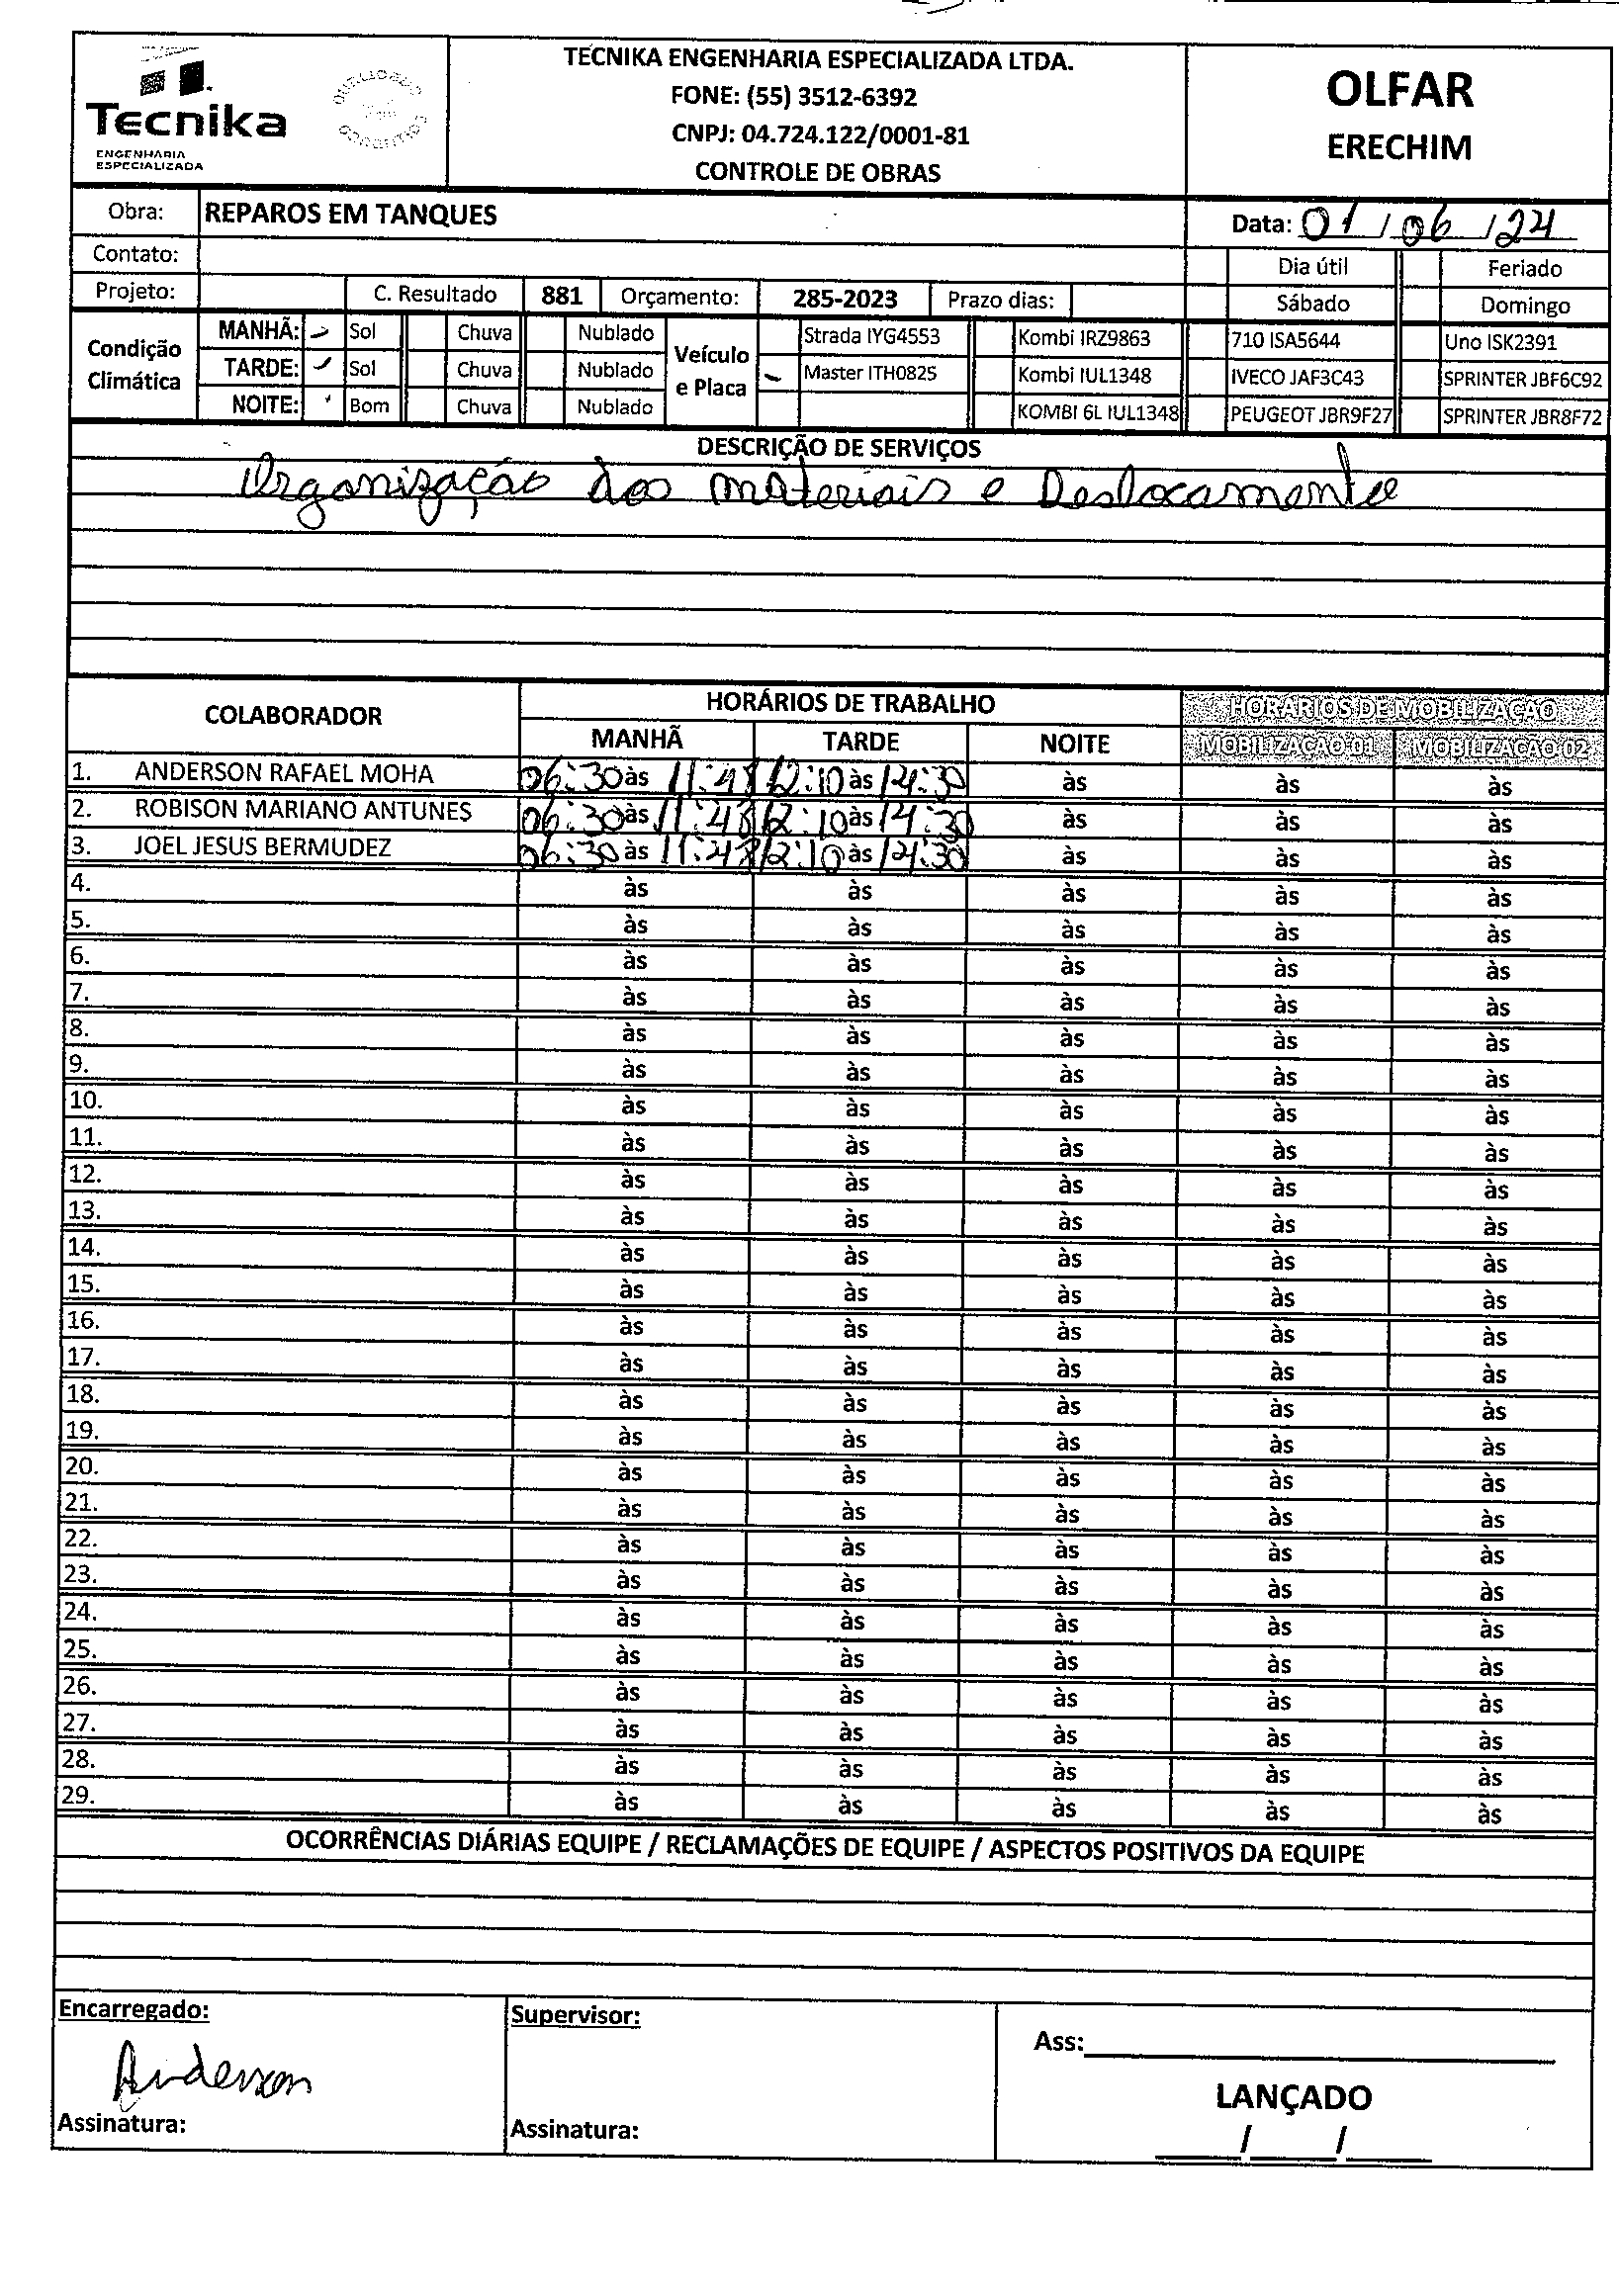 Tecnika
ENGENHARIA
ESPECIALIZADA
TECNIKA ENGENHARIA ESPECIALIZADA LTDA.
FONE: (55) 3512-6392
CNPJ: 04.724.122/0001-81
CONTROLE DE OBRAS
OLFAR
ERECHIM
Obra: REPAROS EM TANQUES
Data: 01/06/24
Contato:
Dia útil Feriado
Projeto: C. Resultado 881 Orçamento: 285-2023 Prazo dias: Sábado Domingo
Condição Climática
MANHÃ: Sol Chuva Nublado
TARDE: Sol Chuva Nublado
NOITE: Bom Chuva Nublado
Veículo e Placa
Strada IYG4553 Kombi IRZ9863 710 ISA5644 Uno ISK2391
Master ITH0825 Kombi IUL1348 IVECO JAF3C43 SPRINTER JBF6C92
KOMBI 6L IUL1348 PEUGEOT JBR9F27 SPRINTER JBR8F72
DESCRIÇÃO DE SERVIÇOS
Organização dos materiais e Deslocamento
COLABORADOR HORÁRIOS DE TRABALHO HORÁRIOS DE MOBILIZAÇÃO
MANHÃ TARDE NOITE MOBILIZAÇÃO 01 MOBILIZAÇÃO 02
1. ANDERSON RAFAEL MOHA 06:30 às 11:48 12:10 às 14:30 às às às
2. ROBISON MARIANO ANTUNES 06:30 às 11:48 12:10 às 14:30 às às às
3. JOEL JESUS BERMUDEZ 06:30 às 11:48 12:10 às 14:30 às às às
4. às às às às às
5. às às às às às
6. às às às às às
7. às às às às às
8. às às às às às
9. às às às às às
10. às às às às às
11. às às às às às
12. às às às às às
13. às às às às às
14. às às às às às
15. às às às às às
16. às às às às às
17. às às às às às
18. às às às às às
19. às às às às às
20. às às às às às
21. às às às às às
22. às às às às às
23. às às às às às
24. às às às às às
25. às às às às às
26. às às às às às
27. às às às às às
28. às às às às às
29. às às às às às
OCORRÊNCIAS DIÁRIAS EQUIPE / RECLAMAÇÕES DE EQUIPE / ASPECTOS POSITIVOS DA EQUIPE
Encarregado: Supervisor:
Ass:
Anderson
LANÇADO
Assinatura: Assinatura:
/ /